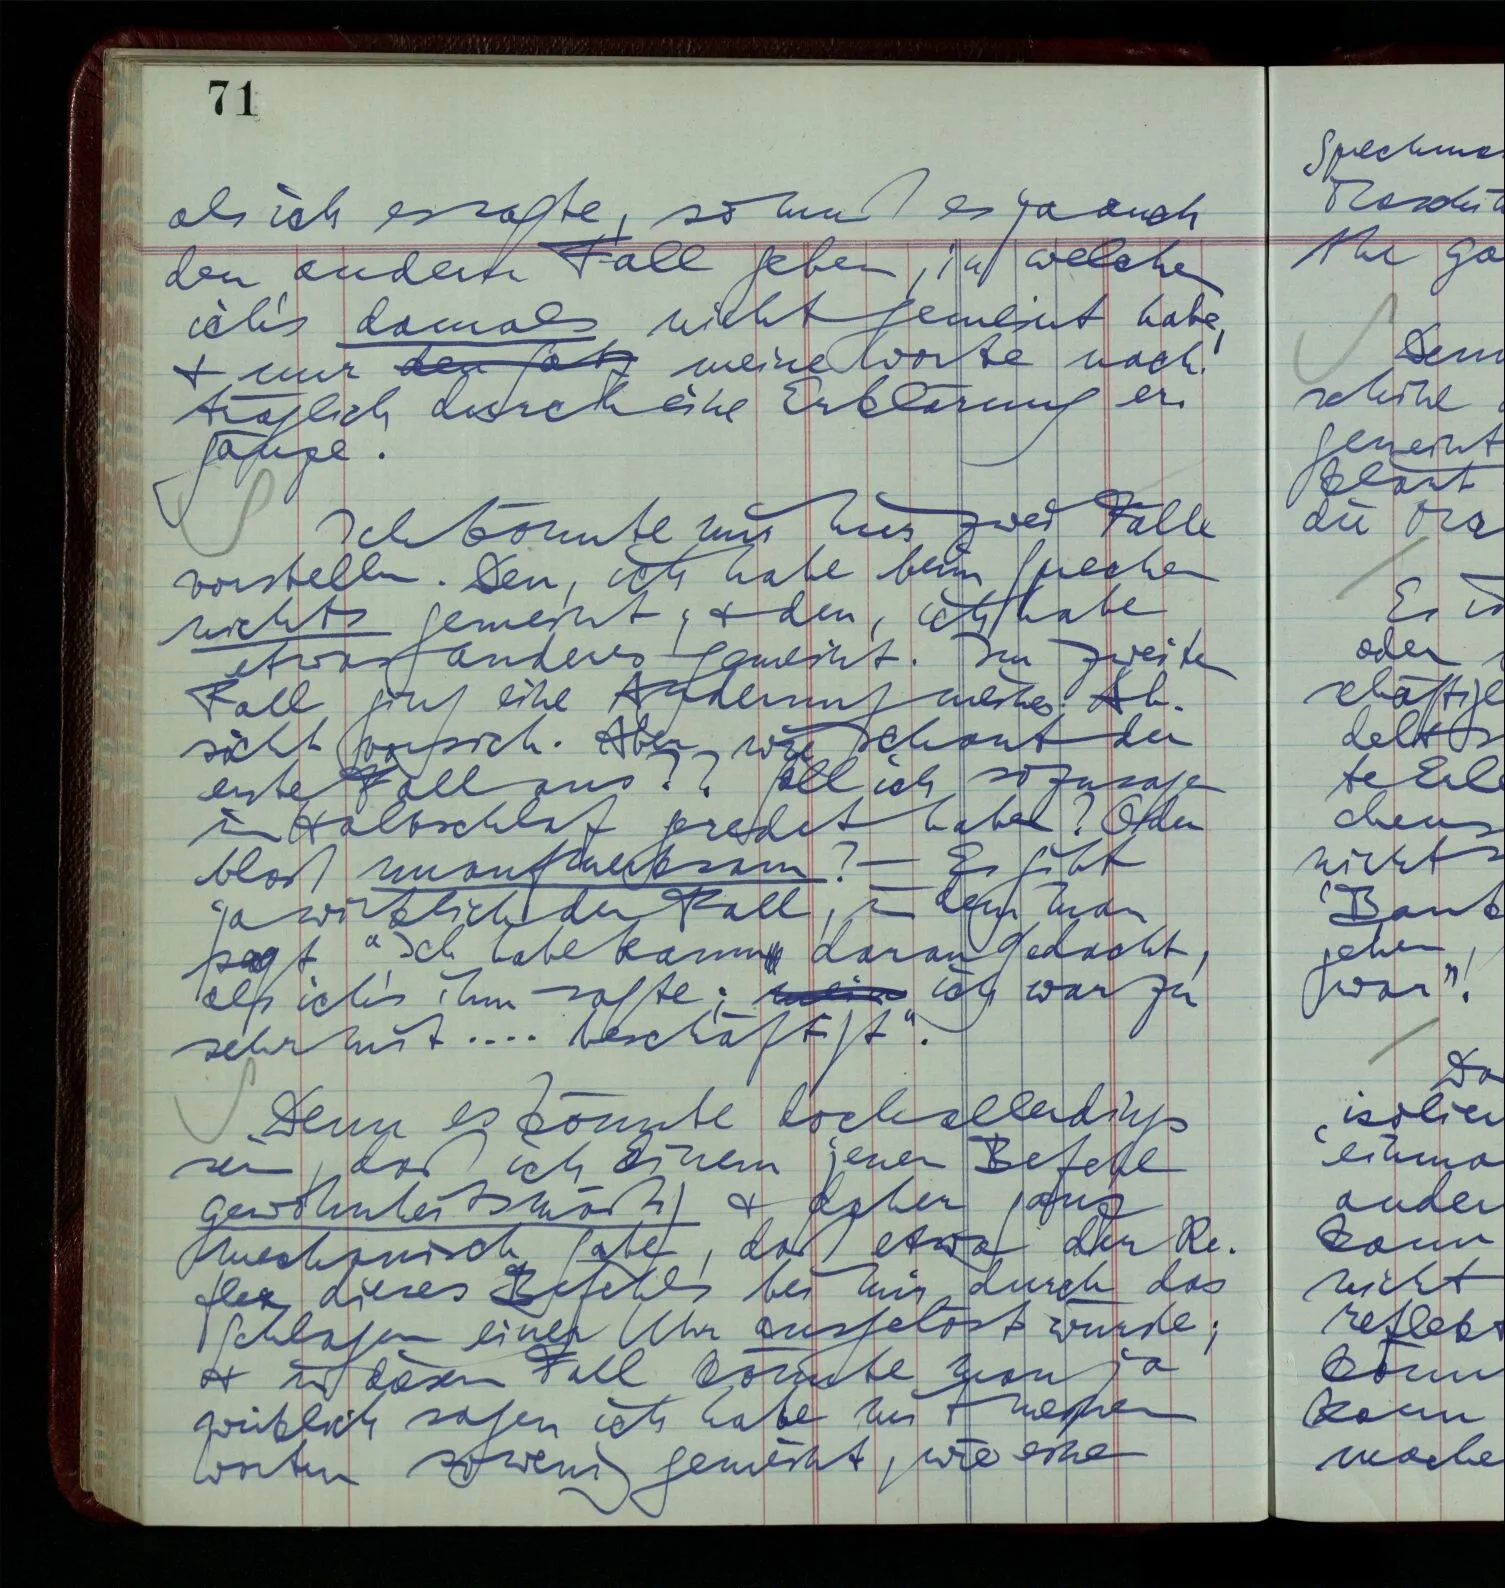 71
als ich es sagte, so muß es ja auch
den anderen Fall geben, in welchem
ich's damals nicht gemeint habe,
& nur den Satz meine Worte nach-
träglich durch eine Erklärung er-
gänze.
Ich könnte mir hier zwei Fälle
vorstellen. Den, ich habe beim Sprechen
nichts gemeint; & den, ich habe
etwas anderes gemeint. Im zweiten
Fall ging eine Änderung meiner Ab-
sicht vor sich. Aber wie schaut der
erste Fall aus?? Soll ich sozusagen
im Halbschlaf geredet haben? Oder
bloß unaufmerksam? — Es gibt
ja wirklich den Fall, in dem man
sagt "Ich habe kaum daran gedacht,
als ich's ihm sagte; ich war zu
sehr mit .... beschäftigt".
Denn es könnte doch allerdings
sein, daß ich Einem jenen Befehl
gewohnheitsmäßig & daher ganz
mechanisch gäbe, daß etwa der Re-
flex dieses Befehls bei mir durch das
Schlagen einer Uhr ausgelöst würde;
& in diesem Fall könnte man ja
wirklich sagen ich habe mit meinen
Worten sowenig gemeint, wie eine
Sprechma
Maschin
Ihr ga
Denn
schine
gemeint
klärt
die Ma
Es
oder
schäftige
delt
te Erle
chens
nicht
'Bank
gehen,
war"!
Da
isolier
'einma
ander
kann
nicht
reflekt
könn
kann
mache